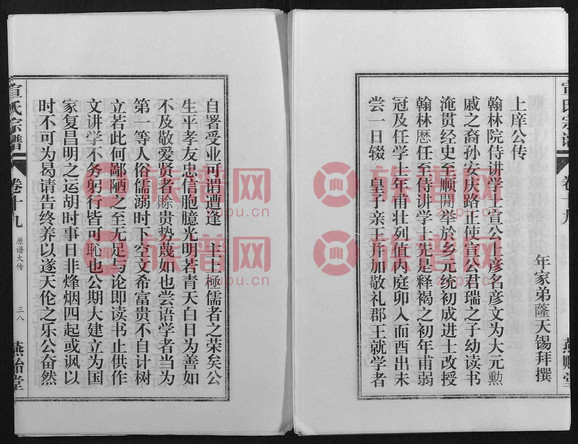 上庠公传
年家弟薩天锡拜撰
翰林院侍讲学士宣公上彦名彦文为大元勲
戚之裔孙安庆路正使宣公君瑞之子幼读书
淹贯经史至顺開举於乡元统初成进士改授
翰林歴任至侍讲学士宪是释褐之初年甫弱
冠及任学士年甫壮列值内庭卯入而酉出未
尝一日辍 皇子亲王并加敬礼郡王就学者
宣氏宗谱
卷十九
燕贻堂
自署受业可谓遭逢 主上極儒者之荣矣公
生平孝友忠信胞臆光明若青天白日为善如
不及敬爱贵者除贵势蔑如也尝语学者当为
第一等人俗儒溺时下空文希富贵不自计树
立若此何鄙陋之至无足与论即读书止供作
文讲学不务躬行皆可恥也公期大建立为国
家复昌明之运胡时事日非烽烟四起或讽以
时不可为曷请告终养以遂天伦之乐公奋然
宣氏宗譜
卷十九
原谱大传
三八
燕贻堂
族谱网
zupu.cn